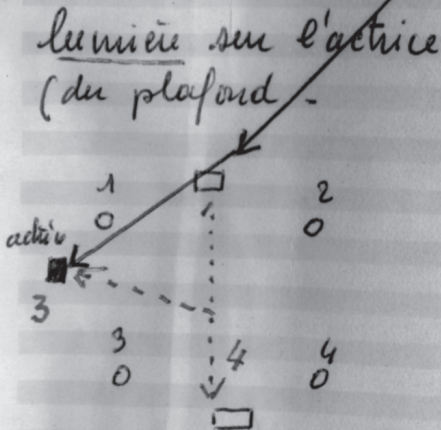 lumière sur l'actrice
(du plafond -
1
2
actrice
3
3
4
4